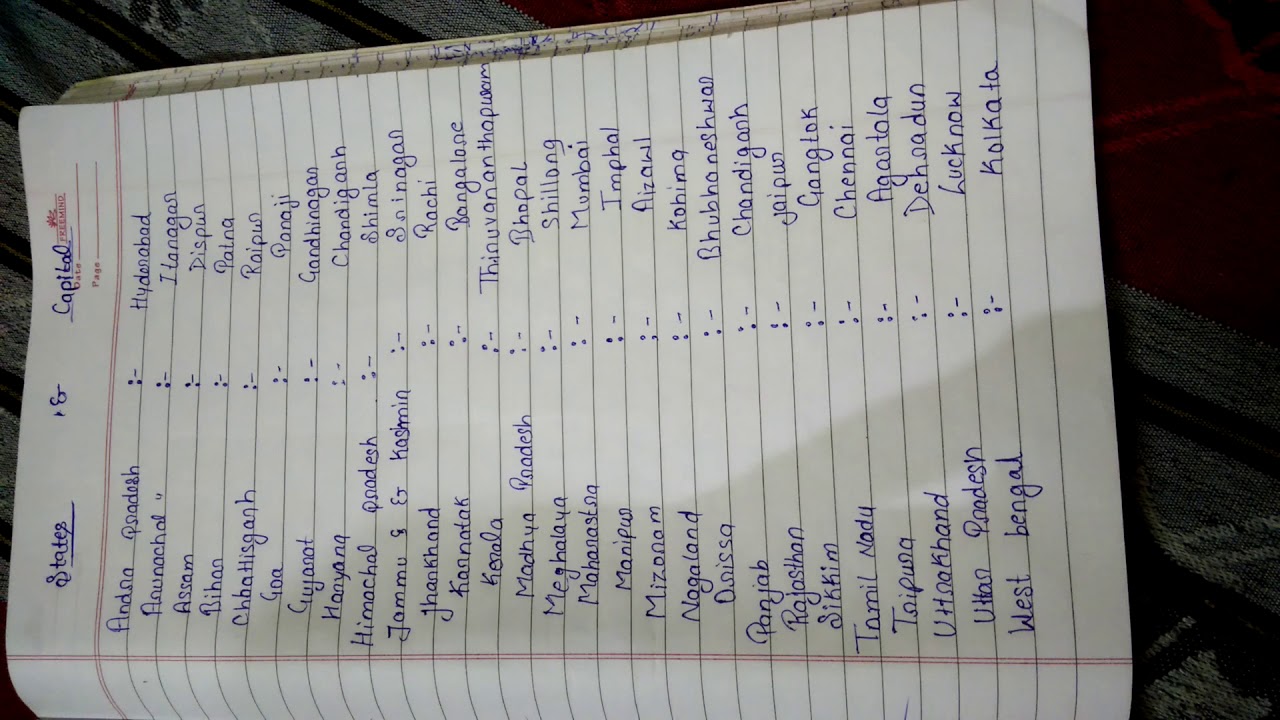 States & Capital
FREEMIND
Date
Page
Andra pradesh :- Hyderabad
Arunachal " :- Itanagar
Assam :- Dispur
Bihar :- Patna
Chhattisgarh :- Raipur
Goa :- Panaji
Gujarat :- Gandhinagar
Haryana :- Chandigarh
Himachal pradesh :- Shimla
Jammu & & Kashmir :- Srinagar
Jharkhand :- Rachi
Karnatak :- Bangalore
Kerala :- Thiruvananthapuram
Madhya Pradesh :- Bhopal
Meghalaya :- Shillong
Maharastra :- Mumbai
Manipur :- Imphal
Mizoram :- Aizawl
Nagaland :- Kohima
Orissa :- Bhubhaneshwar
Panjab :- Chandigarh
Rajasthan :- jaipur
Sikkim :- Gangtok
Tamil Nadu :- Chennai
Tripura :- Agartala
Uttrakhand :- Dehradun
Uttar Pradesh :- Lucknow
West bengal :- Kolkata